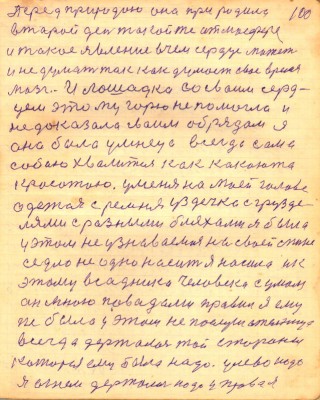 перед природою она при родила 100
второй ден такой же атмосфере
и такое явление в чем сердце может
и не думат так как думает свое время
мозг.. И лошадка со своим серд-
цем этому горю не помогла и
не доказала своим обрядом я
она была умнеус всегда сама
собою хвалится как какаята
красотою. у меня на моей голове
одетая с ремня уздечка с грузде-
лями с разными бляхами я была
у этом не узнаваемая на своей спине
седло не одно насител я насила и к
этому всадника человека с умом
он мною поводами правил я ему
не была у этом не послушательница
всегда держалса той стороны
которая ему была надо. улево надо
я влеи держалса надо управа я